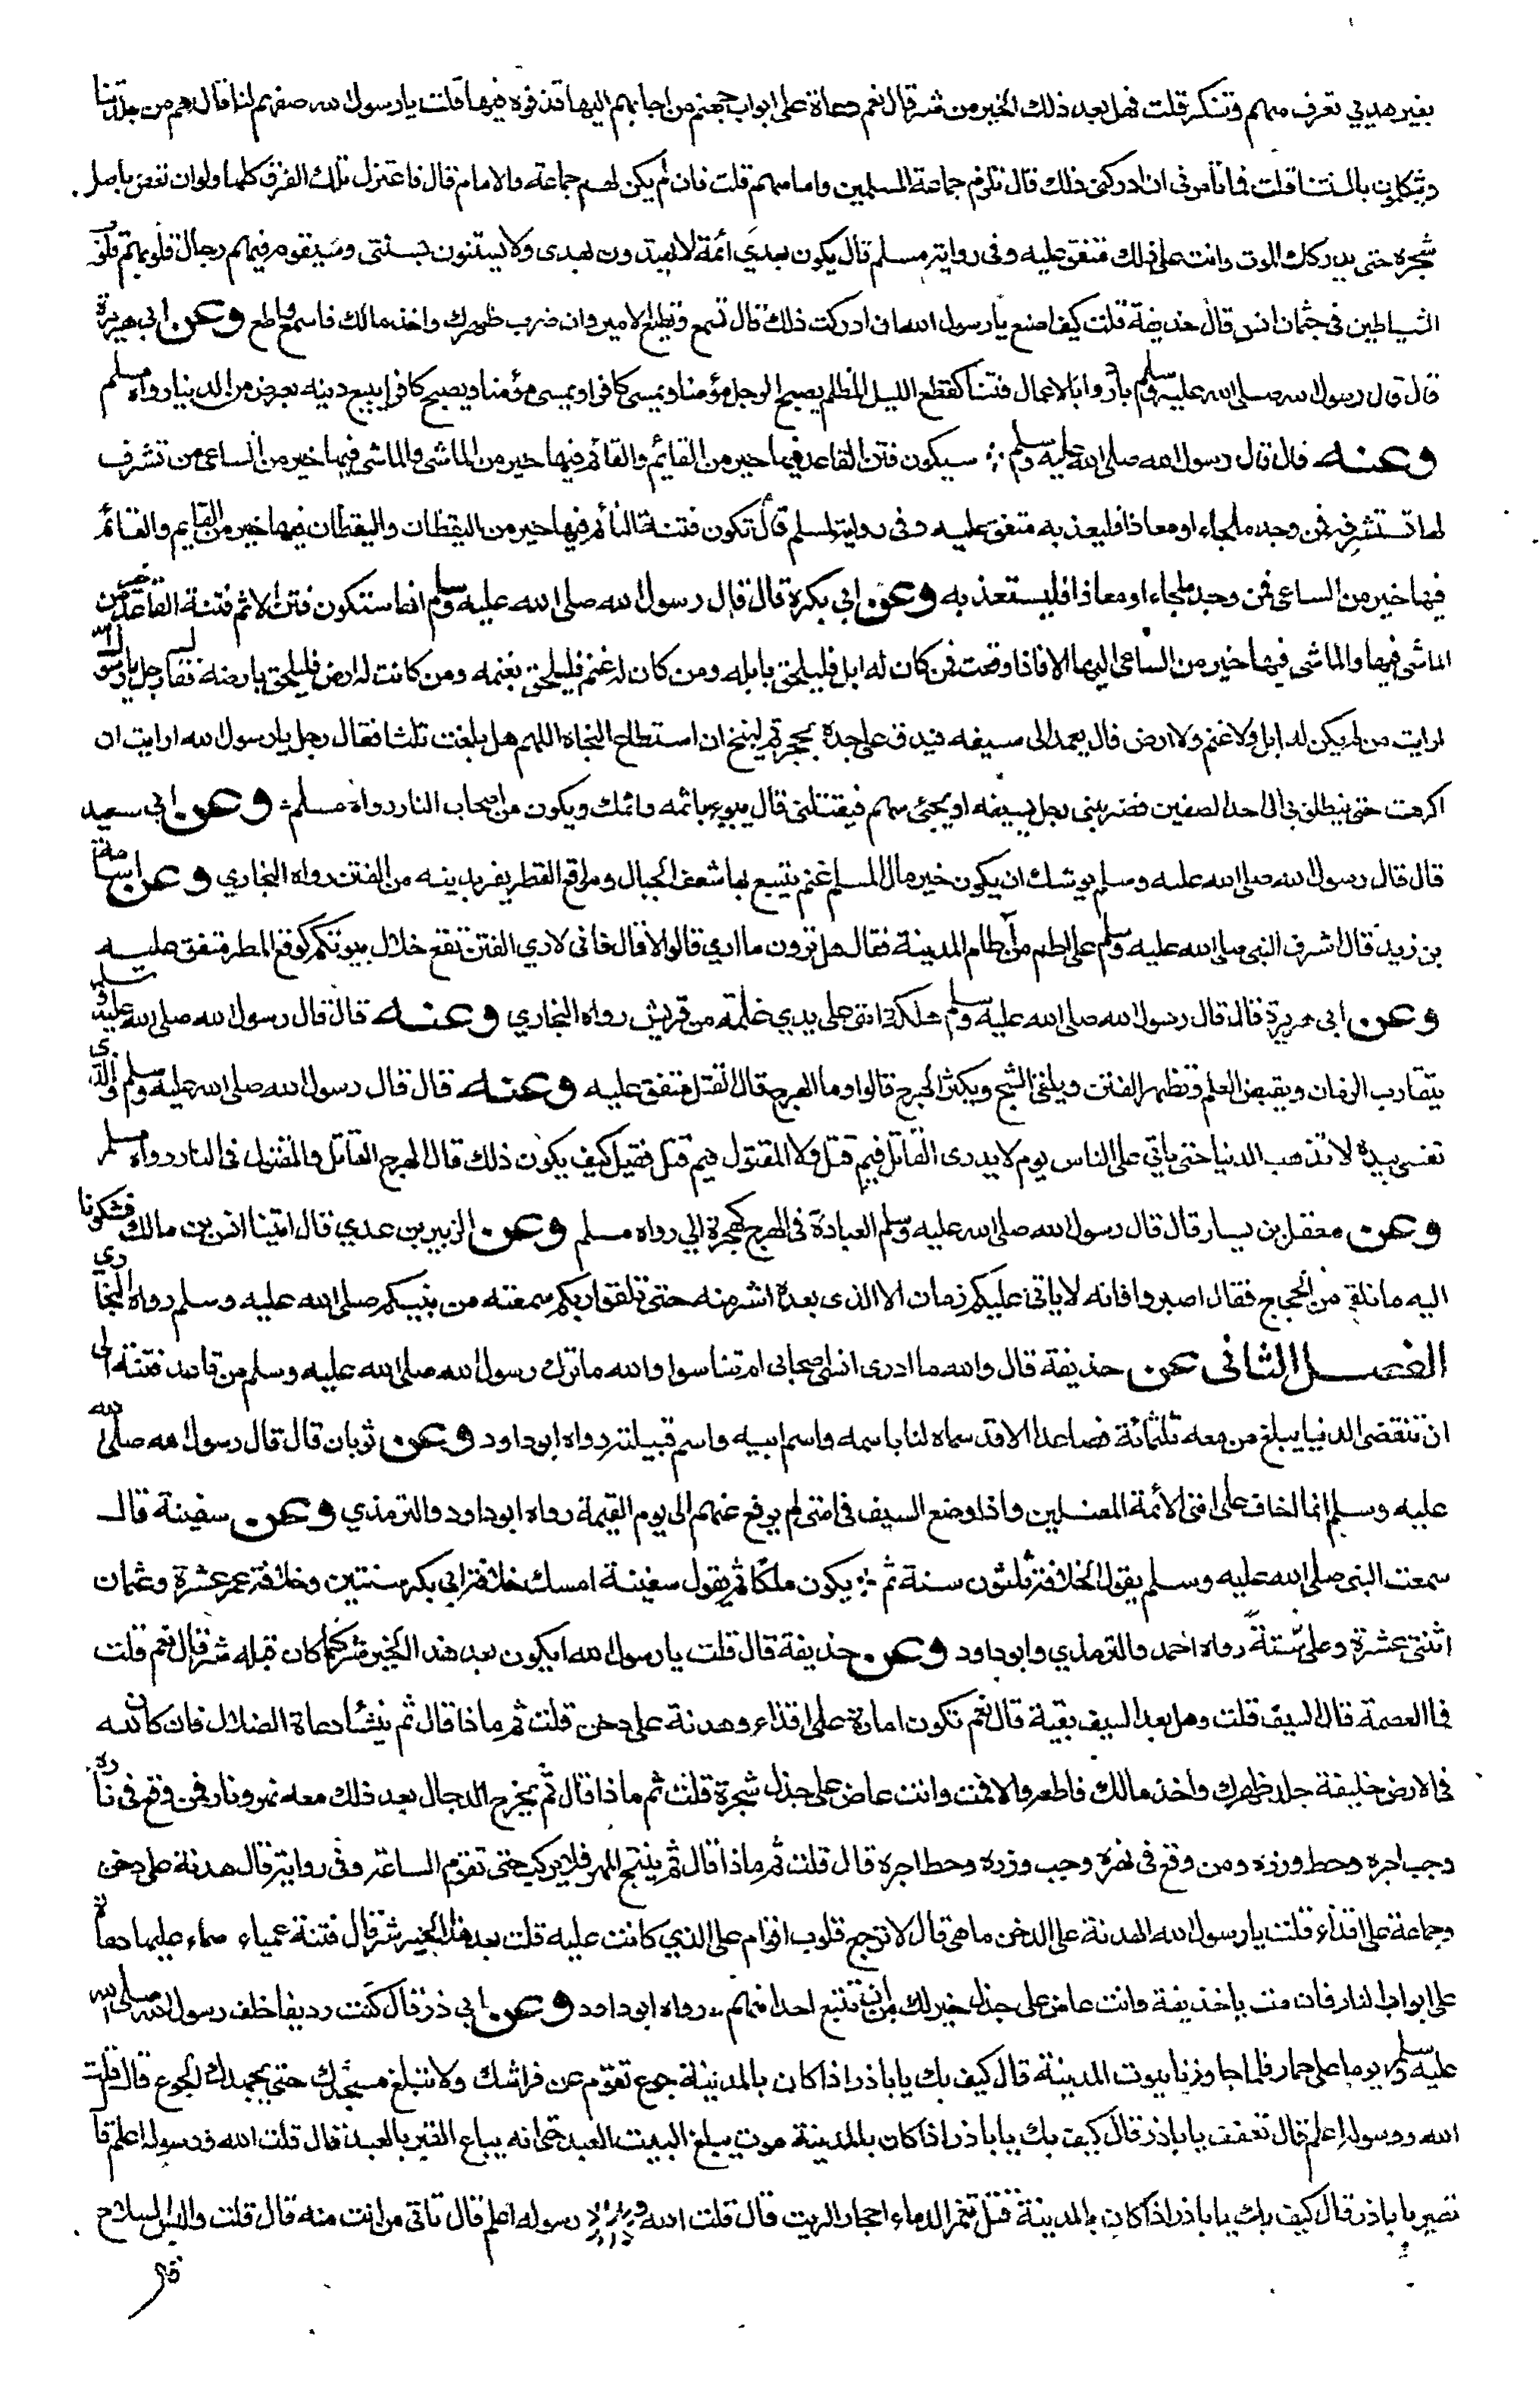 بغير هديي تعرف منهم وتنكر قلت فهل بعد ذلك الخير من شر قال نعم دعاة على ابواب جهنم من اجابهم اليها قذفوه فيها قلت يا رسول الله صفهم لنا قال هم من جلدتنا
ويتكلمون بالسنتنا قلت فما تأمرني ان ادركني ذلك قال تلزم جماعة المسلمين وامامهم قلت فان لم يكن لهم جماعة ولا امام قال فاعتزل تلك الفرق كلها ولو ان تعض باصل
شجرة حتى يدركك الموت وانت على ذلك متفق عليه وفي رواية مسلم قال يكون بعدي ائمة لا يهتدون بهدى ولا يستنون بسنتي وسيقوم فيهم رجال قلوبهم قلوب
الشياطين في جثمان انس قال حذيفة قلت كيف اصنع يا رسول الله ان ادركت ذلك قال تسمع وتطيع الامير وان ضرب ظهرك واخذ مالك فاسمع واطع وعن ابي هريرة
قال قال رسول الله صلى الله عليه وسلم بادروا بالاعمال فتنا كقطع الليل المظلم يصبح الرجل مؤمنا ويمسي كافرا ويمسي مؤمنا ويصبح كافرا يبيع دينه بعرض من الدنيا رواه مسلم
وعنه قال قال رسول الله صلى الله عليه وسلم سيكون فتن القاعد فيها خير من القائم والقائم فيها خير من الماشي والماشي فيها خير من الساعي من تشرف
لها تستشرفه فمن وجد ملجاء او معاذا فليعذ به متفق عليه وفي رواية لمسلم قال تكون فتنة النائم فيها خير من اليقظان واليقظان فيها خير من القايم والقائم
فيها خير من الساعي فمن وجد ملجاء او معاذا فليستعذ به وعن ابي بكرة قال قال رسول الله صلى الله عليه وسلم انها ستكون فتن الا ثم فتنة القاعد خير من
الماشي فيها والماشي فيها خير من الساعي اليها الا فاذا وقعت فمن كان له ابل فليلحق بابله ومن كان له غنم فليلحق بغنمه ومن كانت له ارض فليلحق بارضه فقال رجل يا رسول الله
ارايت من لم يكن له ابل ولا غنم ولا ارض قال يعمد الى سيفه فيدق على حده بحجر ثم لينج ان استطاع النجاة اللهم هل بلغت ثلثا فقال رجل يا رسول الله ارايت ان
اكرهت حتى ينطلق بي الى احد الصفين فضربني رجل بسيفه او يجئ سهم فيقتلني قال يبوء باثمه واثمك ويكون من اصحاب النار رواه مسلم وعن ابي سعيد
قال قال رسول الله صلى الله عليه وسلم يوشك ان يكون خير مال المسلم غنم يتبع بها شعف الجبال ومواقع القطر يفر بدينه من الفتن رواه البخاري وعن اسامة
بن زيد قال اشرف النبي صلى الله عليه وسلم على اطم من آطام المدينة فقال هل ترون ما اري قالوا لا قال فاني لاري الفتن تقع خلال بيوتكم كوقع المطر متفق عليه
وعن ابي هريرة قال قال رسول الله صلى الله عليه وسلم هلكة امتي على يدي غلمة من قريش رواه البخاري وعنه قال قال رسول الله صلى الله عليه وسلم
يتقارب الزمان ويقبض العلم وتظهر الفتن ويلقى الشح ويكثر الهرج قالوا وما الهرج قال القتل متفق عليه وعنه قال قال رسول الله صلى الله عليه وسلم والذي
نفسي بيده لا تذهب الدنيا حتى ياتي على الناس يوم لا يدرى القاتل فيم قتل ولا المقتول فيم قتل فقيل كيف يكون ذلك قال الهرج القاتل والمقتول في النار رواه مسلم
وعن معقل بن يسار قال قال رسول الله صلى الله عليه وسلم العبادة في الهرج كهجرة الي رواه مسلم وعن الزبير بن عدي قال اتينا انس بن مالك فشكونا
اليه ما نلقى من الحجاج فقال اصبروا فانه لا ياتي عليكم زمان الا الذى بعده اشر منه حتى تلقوا ربكم سمعته من نبيكم صلى الله عليه وسلم رواه البخاري
الفصل الثاني عن حذيفة قال والله ما ادرى انسي اصحابي ام تناسوا والله ما ترك رسول الله صلى الله عليه وسلم من قائد فتنة الى
ان تنقضي الدنيا يبلغ من معه ثلثمائة فصاعدا الا قد سماه لنا باسمه واسم ابيه واسم قبيلته رواه ابو داود وعن ثوبان قال قال رسول الله صلى الله
عليه وسلم انما اخاف على امتي الأئمة المضلين واذا وضع السيف في امتي لم يرفع عنهم الى يوم القيمة رواه ابو داود والترمذي وعن سفينة قال
سمعت النبي صلى الله عليه وسلم يقول الخلافة ثلثون سنة ثم يكون ملكا ثم يقول سفينة امسك خلافة ابي بكر سنتين وخلافة عمر عشرة وعثمان
اثنتي عشرة وعلي ستة رواه احمد والترمذي وابو داود وعن حذيفة قال قلت يا رسول الله ايكون بعد هذا الخير شر كما كان قبله شر قال نعم قلت
فما العصمة قال السيف قلت وهل بعد السيف بقية قال نعم تكون امارة على اقذاء وهدنة على دخن قلت ثم ماذا قال ثم ينشأ دعاة الضلال فان كان لله
في الارض خليفة جلد ظهرك واخذ مالك فاطعه والا فمت وانت عاض على جذل شجرة قلت ثم ماذا قال ثم يخرج الدجال بعد ذلك معه نهر ونار فمن وقع في ناره
وجب اجره وحط وزره ومن وقع في نهره وجب وزره وحط اجره قال قلت ثم ماذا قال ثم ينتج المهر فلا يركب حتى تقوم الساعة وفي رواية قال هدنة على دخن
وجماعة على اقذاء قلت يا رسول الله الهدنة على الدخن ما هي قال لا ترجع قلوب اقوام على الذي كانت عليه قلت بعد هذا الخير شر قال فتنة عمياء صماء عليها دعاة
على ابواب النار فان مت يا حذيفة وانت عاض على جذل خير لك من ان تتبع احدا منهم رواه ابو داود وعن ابي ذر قال كنت رديفا خلف رسول الله صلى الله
عليه وسلم يوما على حمار فلما جاوزنا بيوت المدينة قال كيف بك يا باذر اذا كان بالمدينة جوع تقوم عن فراشك ولا تبلغ مسجدك حتى يجهدك الجوع قال قلت
الله ورسوله اعلم قال تعفف يا باذر قال كيف بك يا باذر اذا كان بالمدينة موت يبلغ البيت العبد حتى انه يباع القبر بالعبد قال قلت الله ورسوله اعلم قا
تصبر يا باذر قال كيف بك يا باذر اذا كان بالمدينة قتل تغمر الدماء احجار الزيت قال قلت الله ورسوله اعلم قال تاتي من انت منه قال قلت والبس السلاح